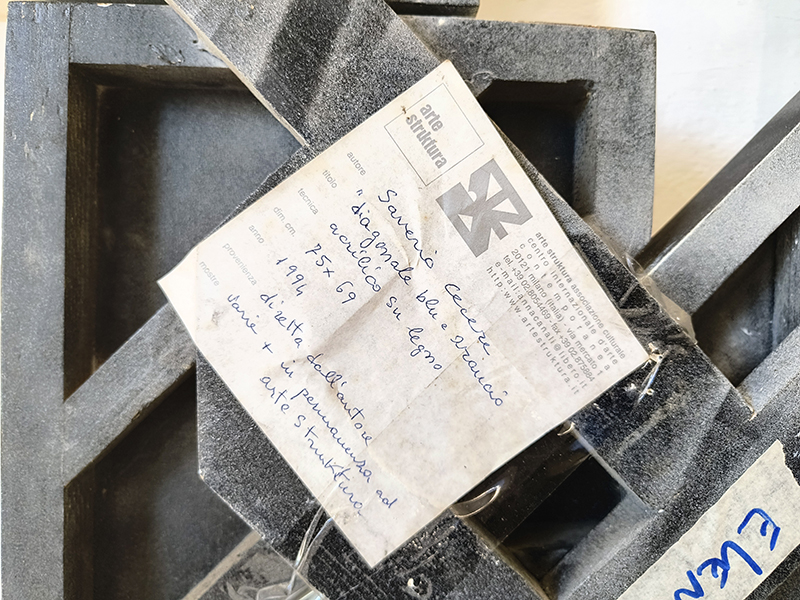 arte
struktura
arte struktura associazione culturale
centro internazionale d'arte
contemporanea
20121 milano (italia) via mercato 1
tel. +39 02.8054469 - fax +39 02.875684
e-mail: annacanali@libero.it
http: www.artestruktura.it
autore Saverio Cecere
titolo "diagonale blu e arancio
tecnica acrilico su legno
dim. cm. 75 x 69
anno 1994
provenienza diretta dall'autore
mostre varie + in permanenza ad
arte struktura
ELEN